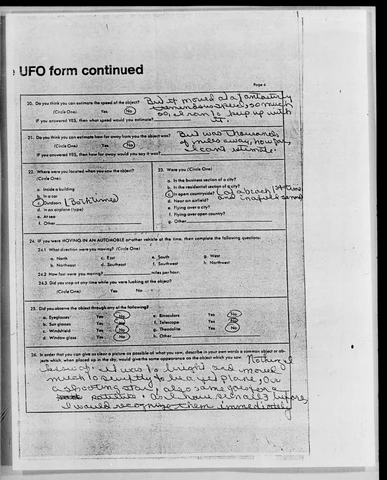 UFO form continued
Page 4
20. Do you think you can estimate the speed of the object? But it moved at a fantastically
(Circle One) Yes No tremendous speed, so much
so, I ran to keep up with
If you answered YES, then what speed would you estimate? it.
21. Do you think you can estimate how far away from you the object was? But was thousands
(Circle One) Yes No of miles away, how far,
If you answered YES, then how far away would you say it was? I can't estimate.
22. Where were you located when you saw the object?
(Circle One)
a. Inside a building
b. In a car
c. Outdoors (Both times)
d. In an airplane (type)
e. At sea
f. Other
23. Were you (Circle One)
a. In the business section of a city?
b. In the residential section of a city?
c. In open countryside? (at a beach
and in a field
d. Near an airfield?
e. Flying over a city?
f. Flying over open country?
g. Other
24. IF you were MOVING IN AN AUTOMOBILE or other vehicle at the time, then complete the following questions:
24.1 What direction were you moving? (Circle One)
a. North c. East e. South g. West
b. Northeast d. Southeast f. Southwest h. Northwest
24.2 How fast were you moving? miles per hour.
24.3 Did you stop at any time while you were looking at the object?
(Circle One) Yes No
25. Did you observe the object through any of the following?
a. Eyeglasses Yes No e. Binoculars Yes No
b. Sun glasses Yes No f. Telescope Yes No
c. Windshield Yes No g. Theodolite Yes No
d. Window glass Yes No h. Other
26. In order that you can give as clear a picture as possible of what you saw, describe in your own words a common object or ob-
jects which, when placed up in the sky, would give the same appearance as the object which you saw. Nothing I
know of. it was to bright and moved
much to swiftly to be a jet plane, or
a shooting star, also same goes for a
satellite. as I have seen all 3 before,
I would recognize them immediately